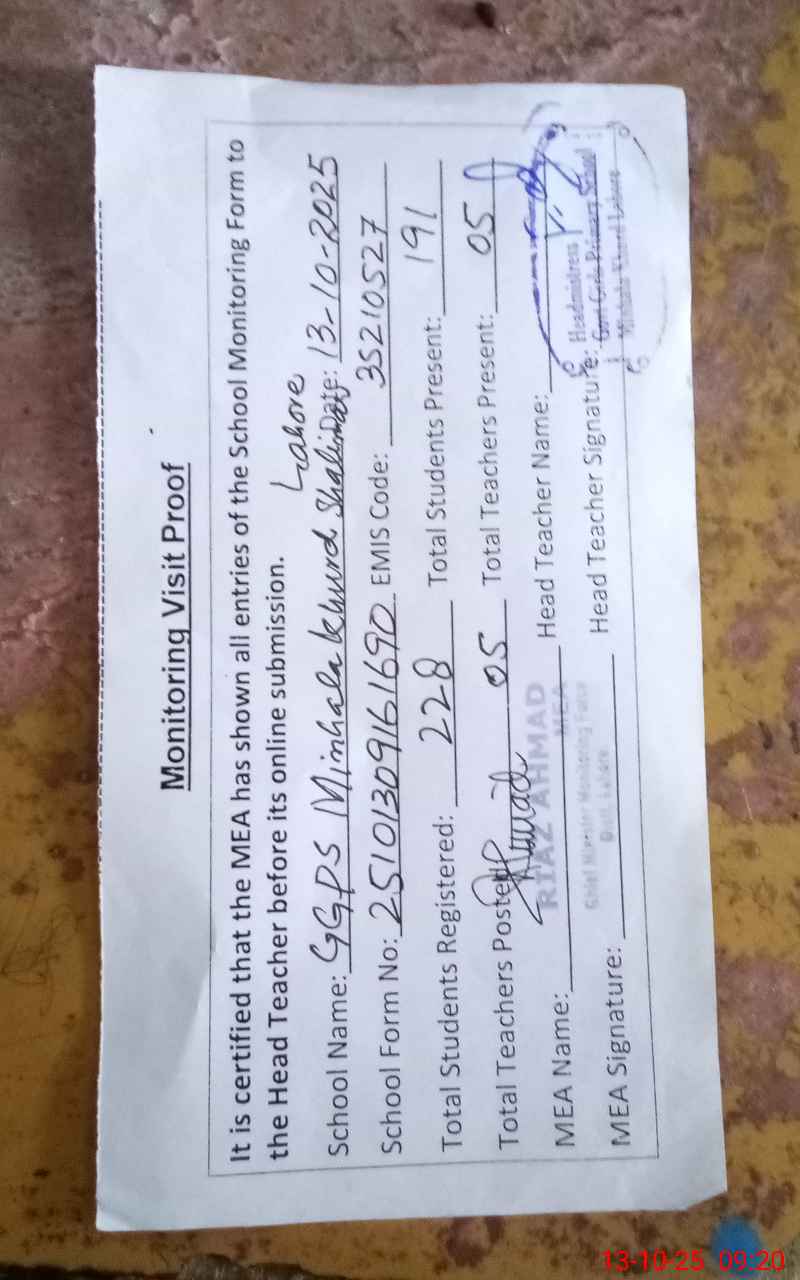 Monitoring Visit Proof
It is certified that the MEA has shown all entries of the School Monitoring Form to
the Head Teacher before its online submission.
Lahore
School Name: GGPS Minhala Khurd Shalimar Date: 13-10-2025
School Form No: 2510130916 1690 EMIS Code: 35210527
Total Students Registered: 228 Total Students Present: 191
Total Teachers Posted: 05 Total Teachers Present: 05
RIAZ AHMAD
MEA
MEA Name: Head Teacher Name:
Chief Minister Monitoring Force
Distt. Lahore
Headmistress
MEA Signature: Head Teacher Signature:
Govt Girls Primary School
Minhala Khurd Lahore
13-10-25 09:20